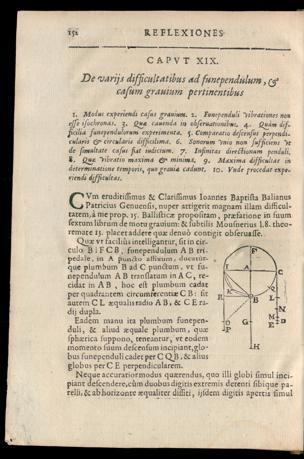 152 REFLEXIONES
CAPVT XIX.
De varijs difficultatibus ad funependulum, &
casum grauium pertinentibus
1. Modus experiendi casus grauium. 2. Funependuli vibrationes non
esse isochronas. 3. Quæ cauenda in obseruationibus. 4. Quàm dif-
ficilia funependulorum experimenta. 5. Comparatio descensus perpendi-
cularis & circularis difficilima. 6. Sonorum vnio non sufficiens vt
de simultate casus fiat iudicium. 7. Infinitas directionum penduli.
8. Quæ vibratio maxima & minima. 9. Maxima difficultas in
determinatione temporis, quo grauia cadunt. 10. Vnde procedat expe-
riendi difficultas.
CVm eruditissimus & Clarissimus Ioannes Baptista Balianus
Patricius Genuensis, nuper attigerit magnam illam difficul-
tatem, à me prop. 15. Ballisticæ propositam, præfatione in suum
sextum librum de motu grauium; & subtilis Mousnerius l.8. theo-
remate 13. placet addere quæ denuò contigit obseruasse.
Quæ vt faciliùs intelligantur, sit in cir-
culo BIFCB, funependulum AB tri-
pedale, in A puncto affixum, ducatúr-
que plumbum B ad C punctum, vt fu-
nependulum AB translatum in AC, re-
cidat in AB, hoc est plumbum cadat
per quadrantem circumferentiæ CB: sit
autem CL æqualis radio AB, & CE ra-
dij dupla.
Eadem manu ita plumbum funepen-
duli, & aliud æquale plumbum, quæ
sphærica suppono, teneantur, vt eodem
momento suum descensum incipiant, glo-
bus funependuli cadet per CQB, & alius
globus per CE perpendicularem.
Neque accuratior modus quærendus, quo illi globi simul inci-
piant descendere, cùm duobus digitis extremis detenti sibique pa-
relli, & ab horizonte æqualiter dissiti, iisdem digitis apertis simul
F
I A C
K Q
B L
R G M
D E
P D
H